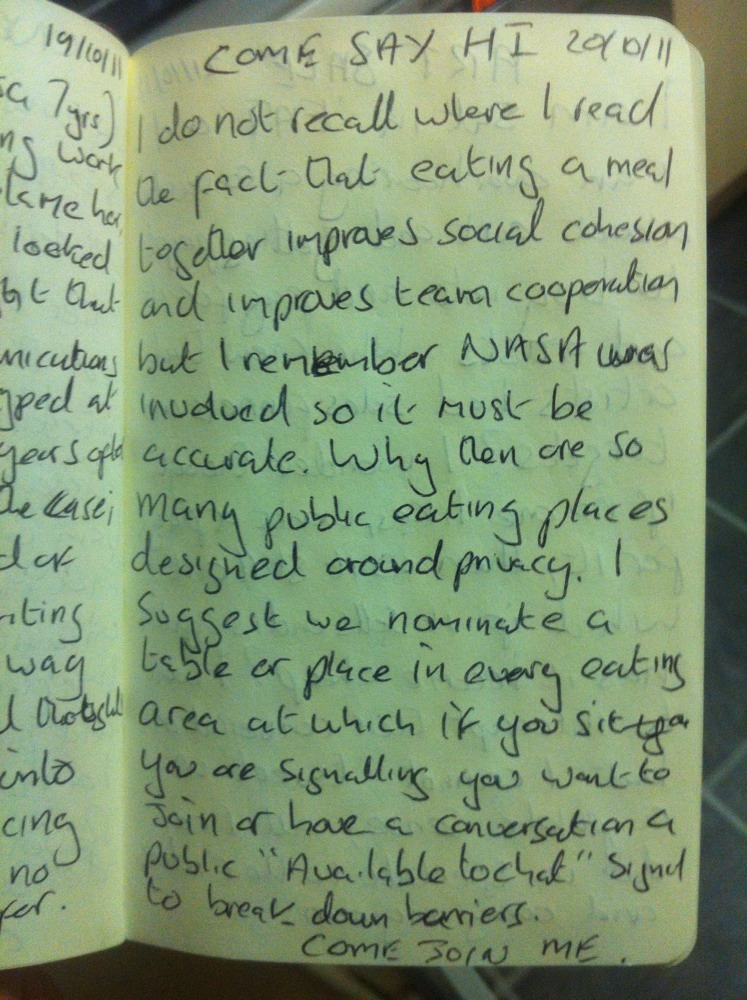 19/10/11
7yrs)
work
looked
that
at
iting
way
into
cing
no
COME SAY HI 20/10/11
I do not recall where I read
the fact that eating a meal
together improves social cohesion
and improves team cooperation
but I remember NASA was
involved so it must be
accurate. Why then are so
many public eating places
designed around privacy. I
suggest we nominate a
table or place in every eating
area at which if you sit
you are signalling you want to
join or have a conversation a
public "Available to chat" signal
to break down barriers.
COME JOIN ME.